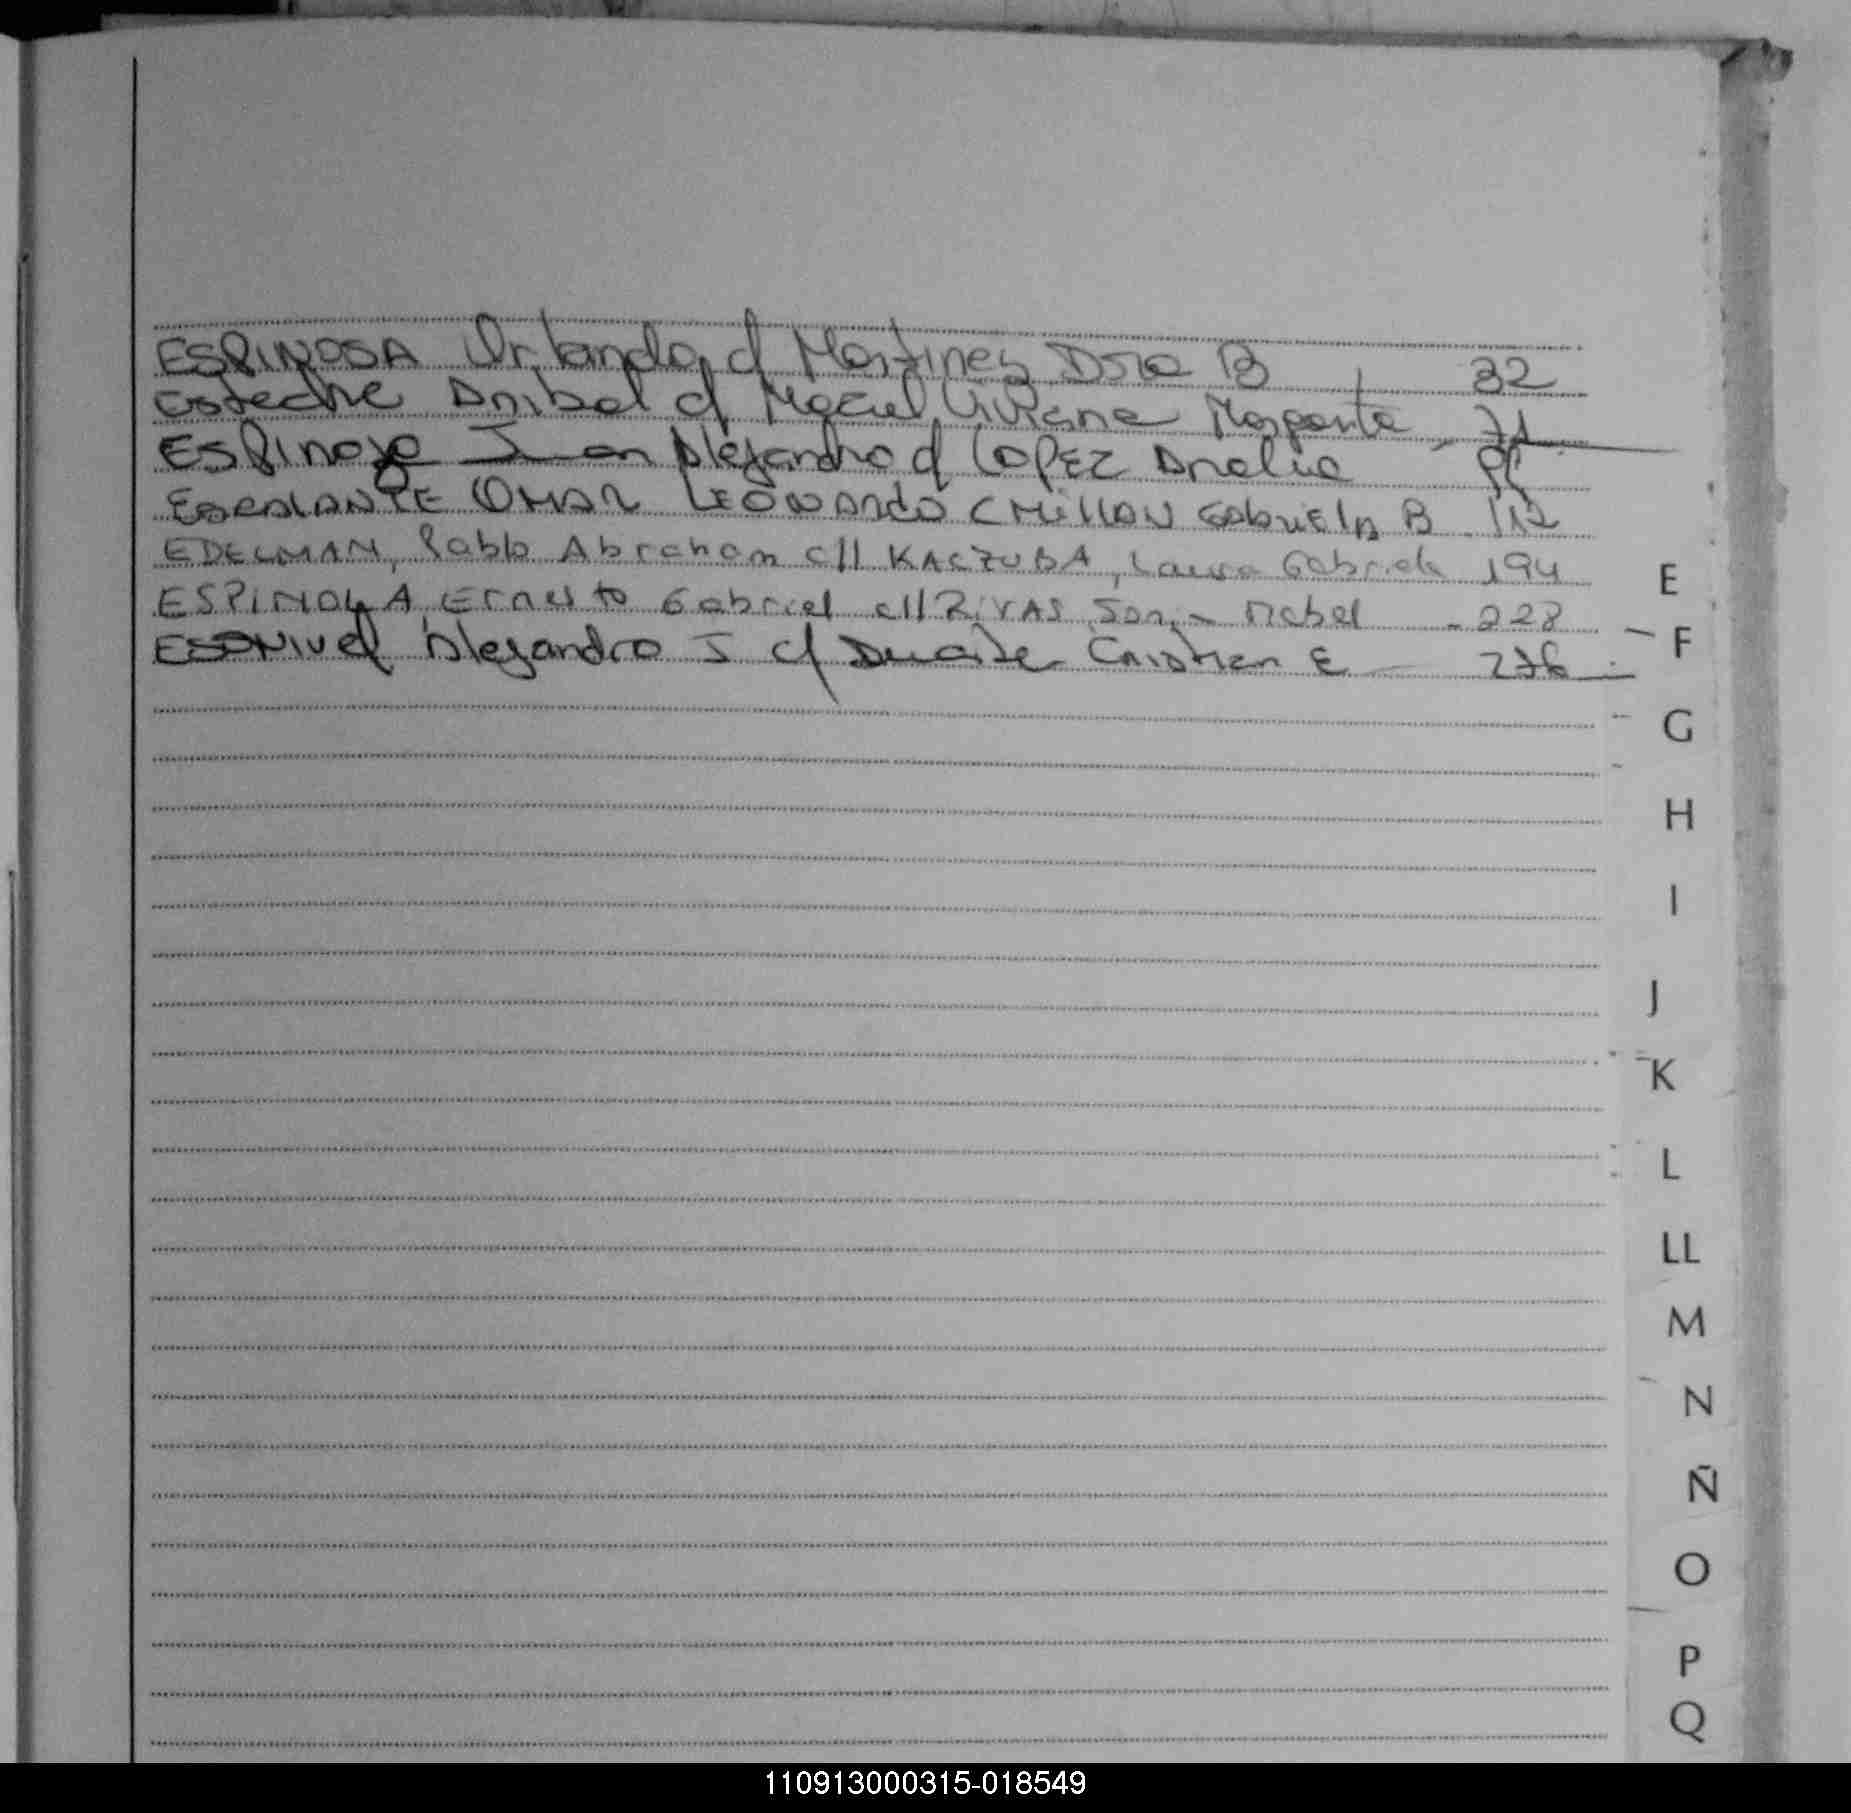 ESPINOSA Orlando c/ Martinez Dora B 32
Esteche Anibal c/ Maciel Viviana Margarita - 71
Espinoza Juan Alejandro c/ LOPEZ Analia
ESCALANTE OMAR LEONARDO C MillAN GAbriElA B 112
EDELMAN, Pablo Abraham c// KACZUBA, Laura Gabriela 194
ESPINOLA, Ernesto Gabriel c// RIVAS, Sonia Mabel - 228
ESQUIVEL Alejandro J c/ Duarte Cristian E 276
E
F
G
H
I
J
K
L
LL
M
N
Ñ
O
P
Q
110913000315-018549